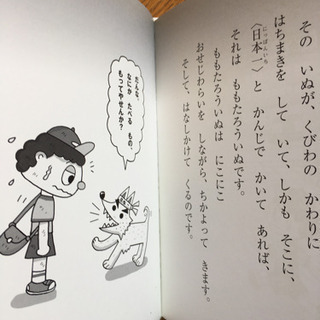 その いぬが、くびわの かわりに
はちまきを して いて、しかも そこに、
〈日本一〉と かんじで かいて あれば、
にっぽんいち
それは ももたろういぬです。
ももたろういぬは にこにこ
おせじわらいを しながら、ちかよって きます。
そして、はなしかけて くるのです。
だんな、
なにか たべる もの、
もってやせんか?